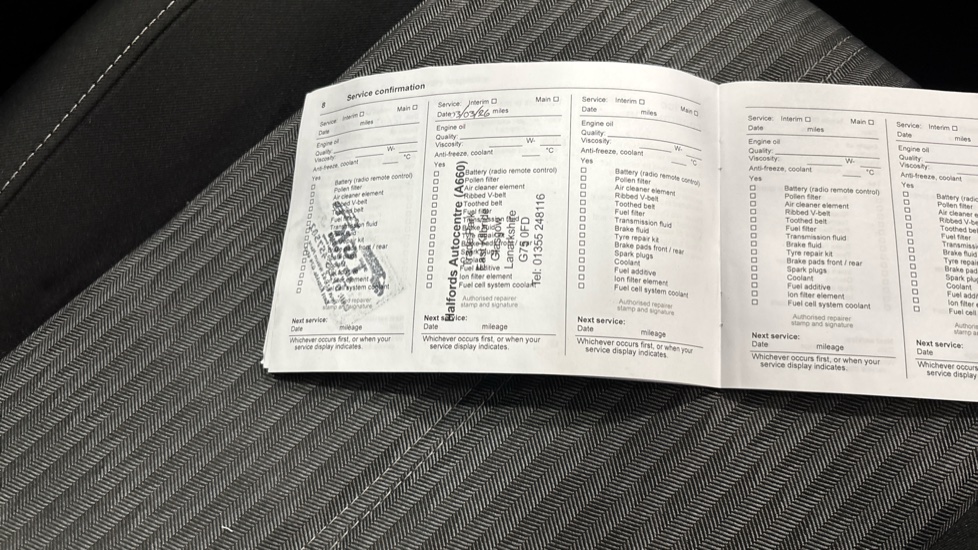 8 Service confirmation
Service: Interim ☐ Main ☐
Date miles
Engine oil
Quality:
Viscosity: W-
Anti-freeze, coolant °C
Yes
☐ Battery (radio remote control)
☐ Pollen filter
☐ Air cleaner element
☐ V-belt
☐ belt
☐
☐ fluid
☐
☐ kit
☐ front / rear
☐
☐
☐
☐ element
☐ system
Authorised repairer
stamp and signature
Next service:
Date mileage
Whichever occurs first, or when your
service display indicates.
Service: Interim ☐ Main ☐
Date 13/03/26 miles
Engine oil
Quality:
Viscosity: W-
Anti-freeze, coolant °C
Yes
☐ Battery (radio remote control)
☐ Pollen filter
☐ Air cleaner element
☐ Ribbed V-belt
☐ Toothed belt
☐ Fuel filter
☐
☐ Brake
☐ Tyre repair
☐ Brake pads front / rear
☐ Spark
☐ Coolant
☐ Fuel additive
☐ Ion filter element
☐ Fuel cell system coolant
Halfords Autocentre (A660)
East Kilbride
Glasgow
Lanarkshire
G75 0FD
Tel: 01355 248116
Authorised repairer
stamp and signature
Next service:
Date mileage
Whichever occurs first, or when your
service display indicates.
Service: Interim ☐ Main ☐
Date miles
Engine oil
Quality:
Viscosity: W-
Anti-freeze, coolant °C
Yes
☐ Battery (radio remote control)
☐ Pollen filter
☐ Air cleaner element
☐ Ribbed V-belt
☐ Toothed belt
☐ Fuel filter
☐ Transmission fluid
☐ Brake fluid
☐ Tyre repair kit
☐ Brake pads front / rear
☐ Spark plugs
☐ Coolant
☐ Fuel additive
☐ Ion filter element
☐ Fuel cell system coolant
Authorised repairer
stamp and signature
Next service:
Date mileage
Whichever occurs first, or when your
service display indicates.
Service: Interim ☐ Main ☐
Date miles
Engine oil
Quality:
Viscosity: W-
Anti-freeze, coolant °C
Yes
☐ Battery (radio remote control)
☐ Pollen filter
☐ Air cleaner element
☐ Ribbed V-belt
☐ Toothed belt
☐ Fuel filter
☐ Transmission fluid
☐ Brake fluid
☐ Tyre repair kit
☐ Brake pads front / rear
☐ Spark plugs
☐ Coolant
☐ Fuel additive
☐ Ion filter element
☐ Fuel cell system coolant
Authorised repairer
stamp and signature
Next service:
Date mileage
Whichever occurs first, or when your
service display indicates.
Service: Interim ☐
Date miles
Engine oil
Quality:
Viscosity:
Anti-freeze, coolant
Yes
☐ Battery (radio
☐ Pollen filter
☐ Air cleaner
☐ Ribbed V-be
☐ Toothed be
☐ Fuel filter
☐ Transmis
☐ Brake fluid
☐ Tyre repai
☐ Brake pad
☐ Spark plu
☐ Coolant
☐ Fuel addi
☐ Ion filter
☐ Fuel cell
Autho
stamp a
Next service:
Date
Whichever occurs
service display